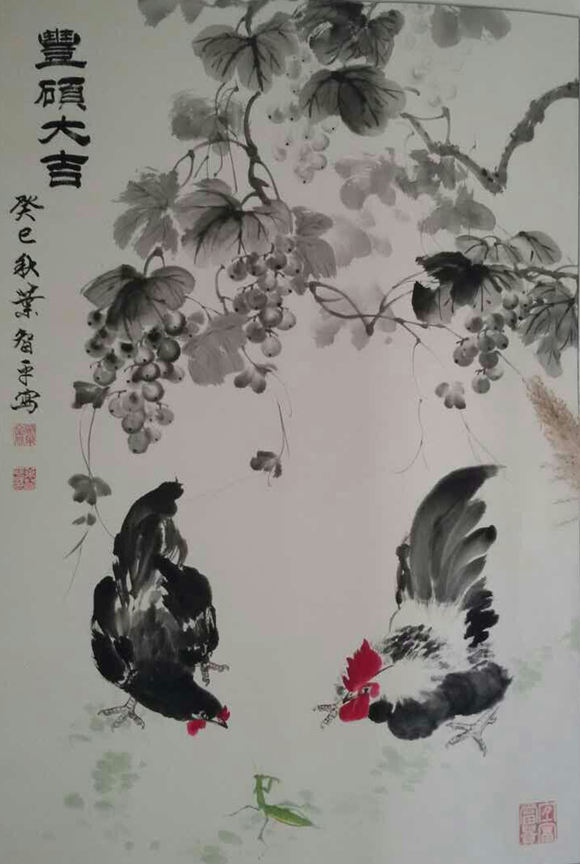 豐碩大吉
癸巳秋葉智平寫